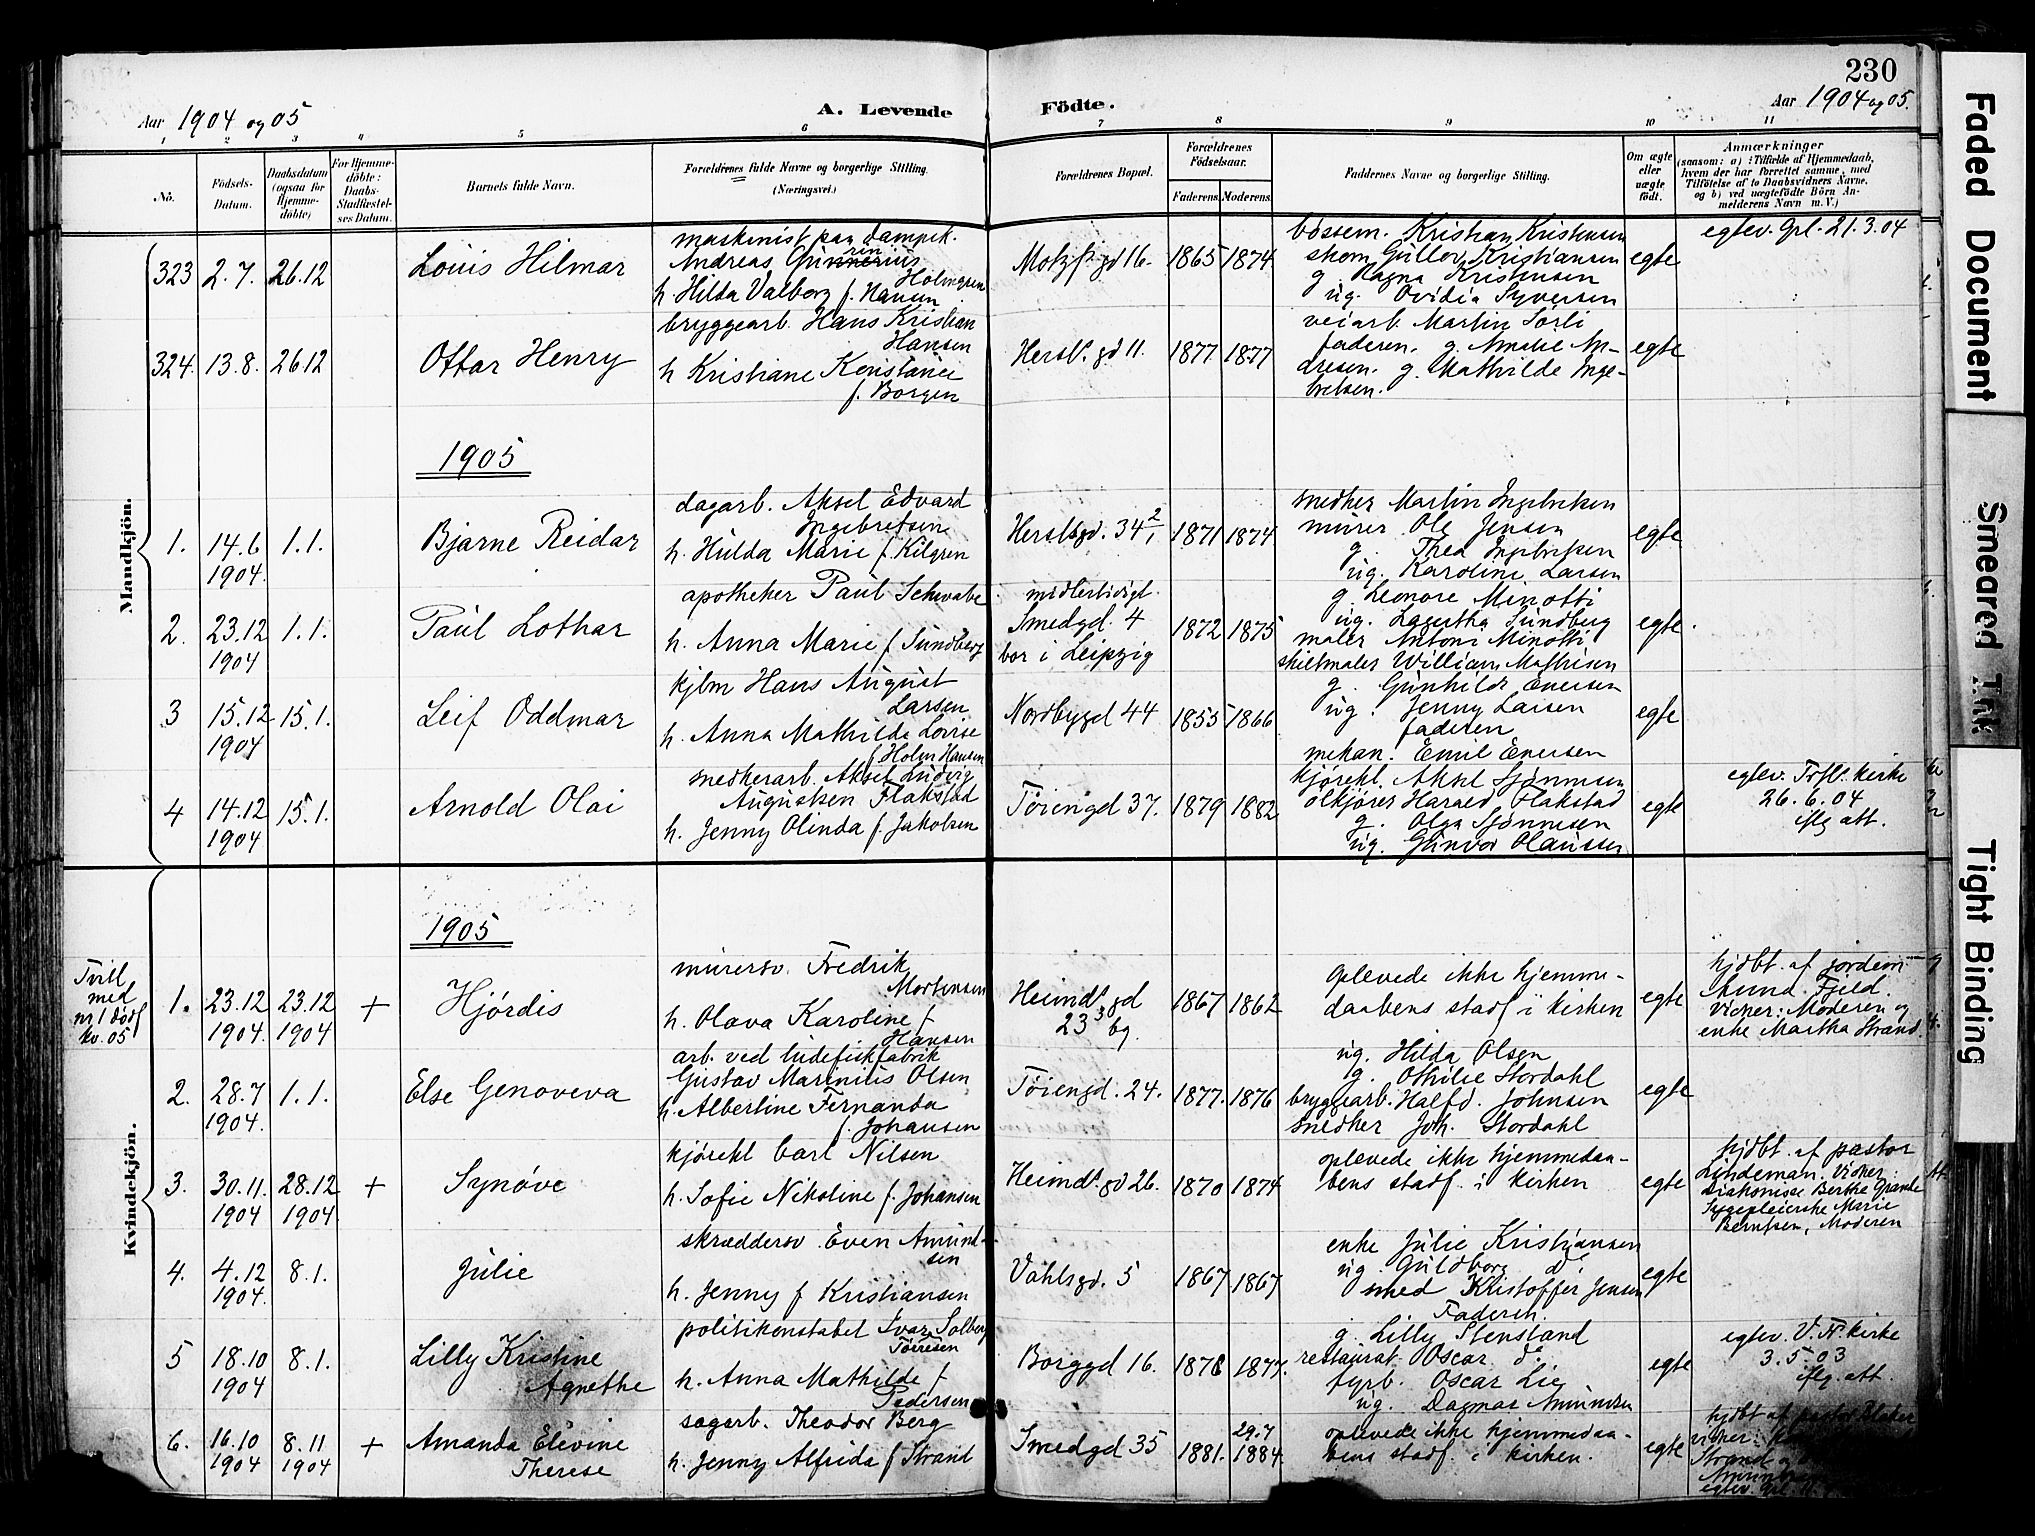 230
Aar 1904 og 05
A. Levende Födte.
Aar 1904 og 05.
1 2 3 4 5 6 7 8 9 10 11
No.
Födsels-Datum.
Daabsdatum (ogsaa for Hjemme-döbte)
For Hjemme-döbte: Daabs-Stadfæstel-ses Datum.
Barnets fulde Navn.
Forældrenes fulde Navne og borgerlige Stilling. (Næringsvei.)
Forældrenes Bopæl.
Forældrenes Födselsaar.
Faderens Moderens.
Faddernes Navne og borgerlige Stilling.
Om ægte eller uægte födt.
Anmærkninger
(saasom: a) i Tilfælde af Hjemmedaab, hvem der har forrettet samme, med Tilföielse af to Daabsvidners Navne, og b) ved uægtefödte Börn An-melderens Navn m. V.)
Mandkjön.
323 2.7. 26.12 Louis Hilmar
maskinist paa dampsk.
Andreas
Holmgren
h. Hilda Valborg f. Hansen
1865 1874
bøssem. Kristian Kristensen
skom. Kristiansen
g. Ragna Kristensen
ug. Ovidia Syversen
egte
egtev. Grl. 21.3.04
324. 13.8. 26.12 Ottar Henry
bryggearb. Hans Kristian
Hansen
h. Kristiane Konstance
f. Borgen
Hersl. gd 11. 1877 1877
veiarb. Martin Sørli
faderen. g. Amalie An-
dresen. g. Mathilde Inge-
bretsen.
egte
1905
1. 14.6 1904. 1.1. Bjarne Reidar
dagarb. Aksel Edvard
Ingebretsen
h. Hulda Marie f. Kilgren
Herslbgd. 34 2 1871 1874
snedker Martin Ingebretsen
murer Ole Jensen
g. Thea Ingebretsen
ug. Karoline Larsen
egte
2. 23.12 1904 1.1. Paul Lothar
apotheker Paul Schwabe
h. Anna Marie f. Sundberg
midlertidigt.
Smedgd. 4
bor i Leipzig
1872 1875
g. Leonore Minotti
ug. Lagertha Sundberg
maler Antoni Minotti
skiltmaler William Mathisen
egte
3 15.12 1904 15.1. Leif Oddmar
kjlm Hans August
Larsen
h. Anna Mathilde Lovise
f. Holm Hansen
Nordbygd 44 1855 1866
g. Gunhild Evensen
ug. Jenny Larsen
faderen
mekan. Emil Evensen
egte
4 14.12 1904 15.1. Arnold Olai
snedkerarb. Aksel Ludvig
Augustsen Flakstad
h. Jenny Olinda f. Jakobsen
Tøiengd 37. 1879 1882
kjørekl. Aksel Sjønnesen
ølkjører Harald Flakstad
g. Olga Sjønnesen
ug. Gunvor Olaussen
egte
egtev. Trfl. kirke
26.6.04
iflg att.
Kvindekjön.
1905
Tvill med nr 1 dødf kv. 05
1. 23.12 1904. 23.12 1904 + Hjørdis
murersv. Fredrik
Mortensen
h. Olava Karoline f.
Hansen
Heimdl. gd
23 3 bg.
1867 1862
oplevede ikke hjemme-
daabens stadf. i kirken
egte
hjdbt. af jordem
Lund Fjeld.
Vidner: Moderen og
enke Martha Strand.
2. 28.7 1904. 1.1. Else Genoveva
arb. ved ludefiskfabrik
Gustav Marinius Olsen
h. Albertine Fernanda
f. Johansen
Tøiengd. 24. 1877. 1876
ug. Hilda Olsen
g. Othilie Stordahl
bryggearb. Halfd. Johnsen
snedker Joh. Stordahl
egte
3. 30.11. 1904 28.12 1904. + Synøve
kjørekl Carl Nilsen
h. Sofie Nikoline f. Johansen
Heimdl. gd 26. 1870 1874
oplevede ikke hjemmedaa-
bens stadf. i kirken
egte
hjdbt. af pastor
Lindeman. Vidner:
diakonisse Berthe Grande
Sygepleierske Marie
Berntsen, Moderen
4. 4.12 1904. 8.1. Julie
skræddersv. Even Amund-
sen
h. Jenny f Kristiansen
Vahlsgd. 5 1867 1867
enke Julie Kristiansen
ug. Guldborg do
smed Kristoffer Jensen
Faderen.
egte
5 18.10 1904 8.1. Lilly Kristine
Agnethe
politikonstabel Ivar Solberg
Tøresen
h. Anna Mathilde f.
Pedersen
Borggd 16. 1877.
g. Lilly Stensland
restaurat. Oscar do
fyrb. Oscar Lie
ug. Dagmar Amundsen
egte
egtev. V. Ak. kirke
3.5.03
iflg. att.
6. 16.10 1904 8.11 1904 + Amanda Elevine
Therese
sagarb. Theodor Berg
h. Jenny Alfrida f Strand
Smedgd 35 1881. 29.7 1884.
oplevede ikke hjemmedaa-
bens stadf. i kirken.
egte
hjdbt af pastor
Vidner:
Strand
egtev. Grl.
Faded Document
Smeared Ink
Tight Binding